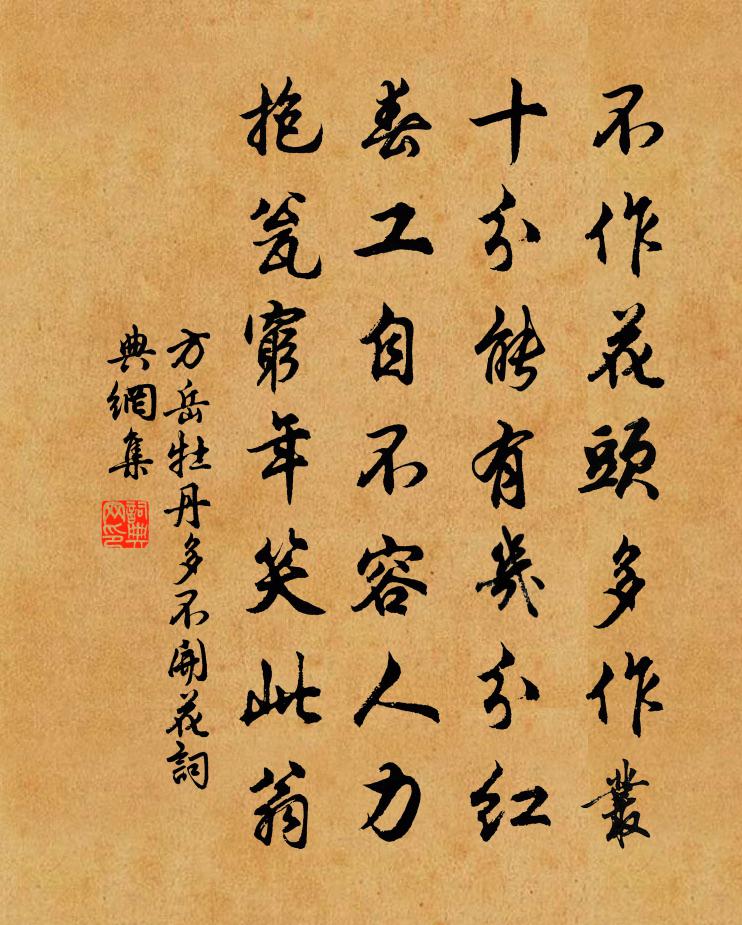 不作花頭多作叢
十分能有幾分紅
春工自不容人力
抱瓮窮年笑此翁
方岳牡丹多不開花詞
典網集
詞典
网印